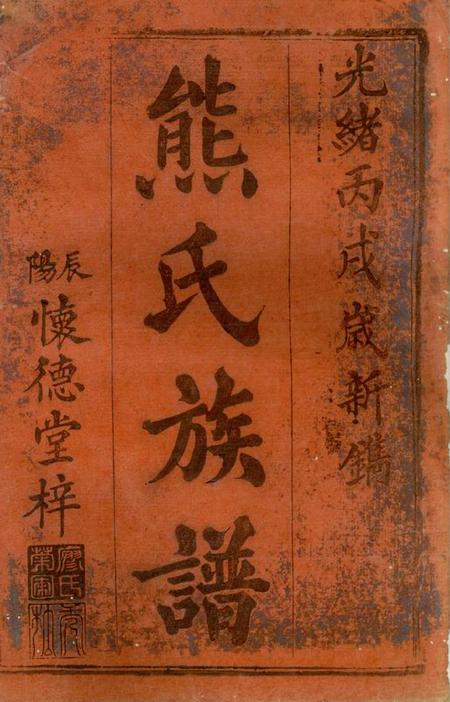 光緒丙戌歲新鐫
熊氏族譜
辰陽
懷德堂梓